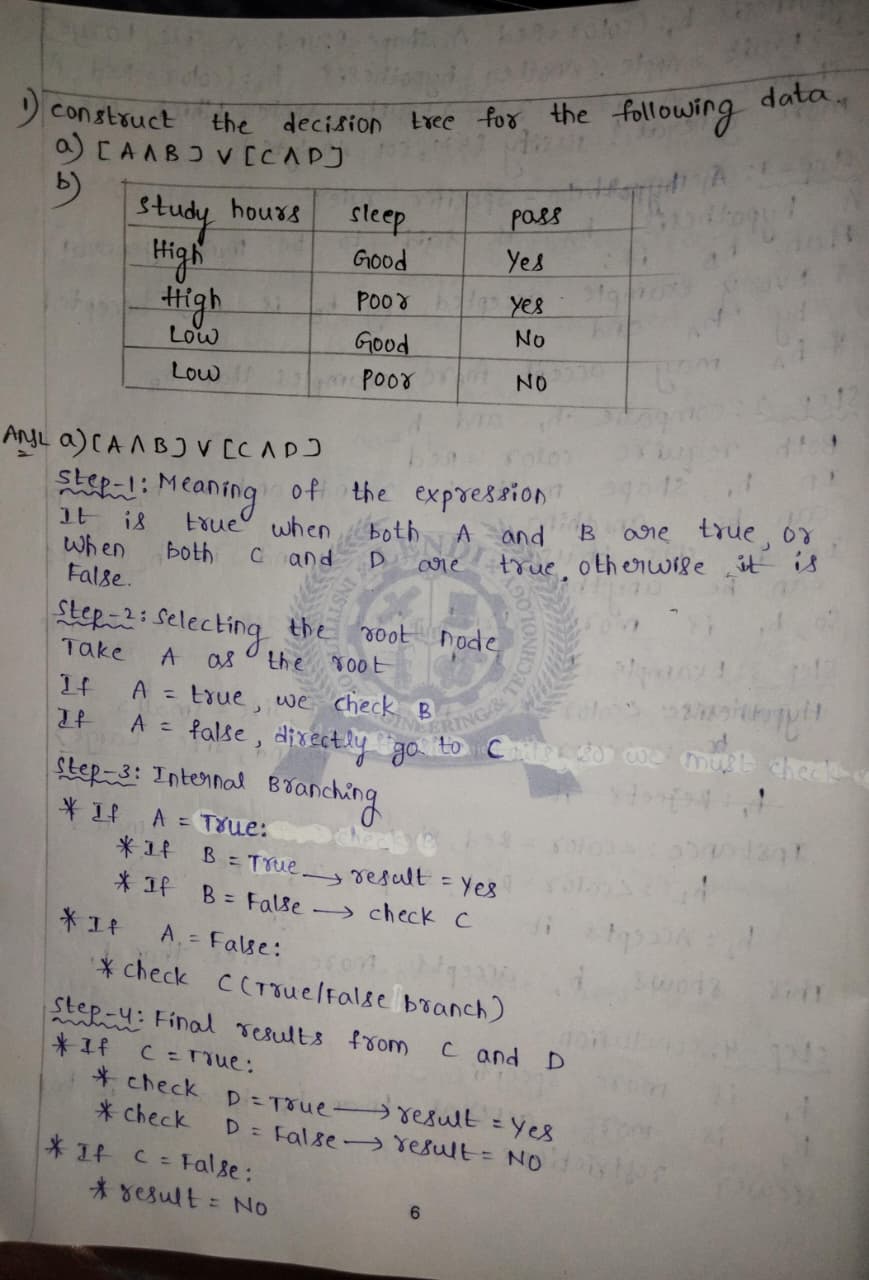 1) construct the decision tree for the following data.
a) [A∧B] ∨ [C∧D]
b)
study hours sleep pass
High Good Yes
High Poor Yes
Low Good No
Low Poor No
Ans: a) [A∧B] ∨ [C∧D]
Step-1: Meaning of the expression
It is true when both A and B are true, or
when both C and D are true, otherwise it is
False.
Step-2: Selecting the root node
Take A as the root
If A = true, we check B
If A = false, directly go to C
must check
Step-3: Internal Branching
* If A = True:
* If B = True → result = Yes
* If B = False → check C
* If A = False:
* check C (True/False branch)
Step-4: Final results from C and D
* If C = True:
* check D = True → result = Yes
* check D = False → result = NO
* If C = False:
* result = No
6